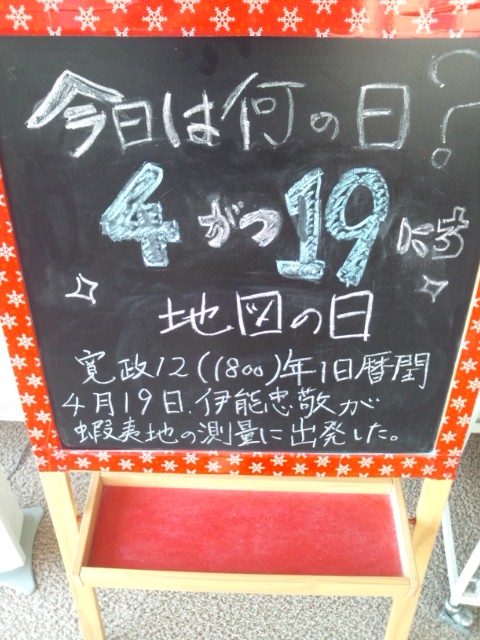 今日は何の日?
4がつ19にち
地図の日
寛政12(1800)年1日暦閏
4月19日、伊能忠敬が
蝦夷地の測量に出発した。